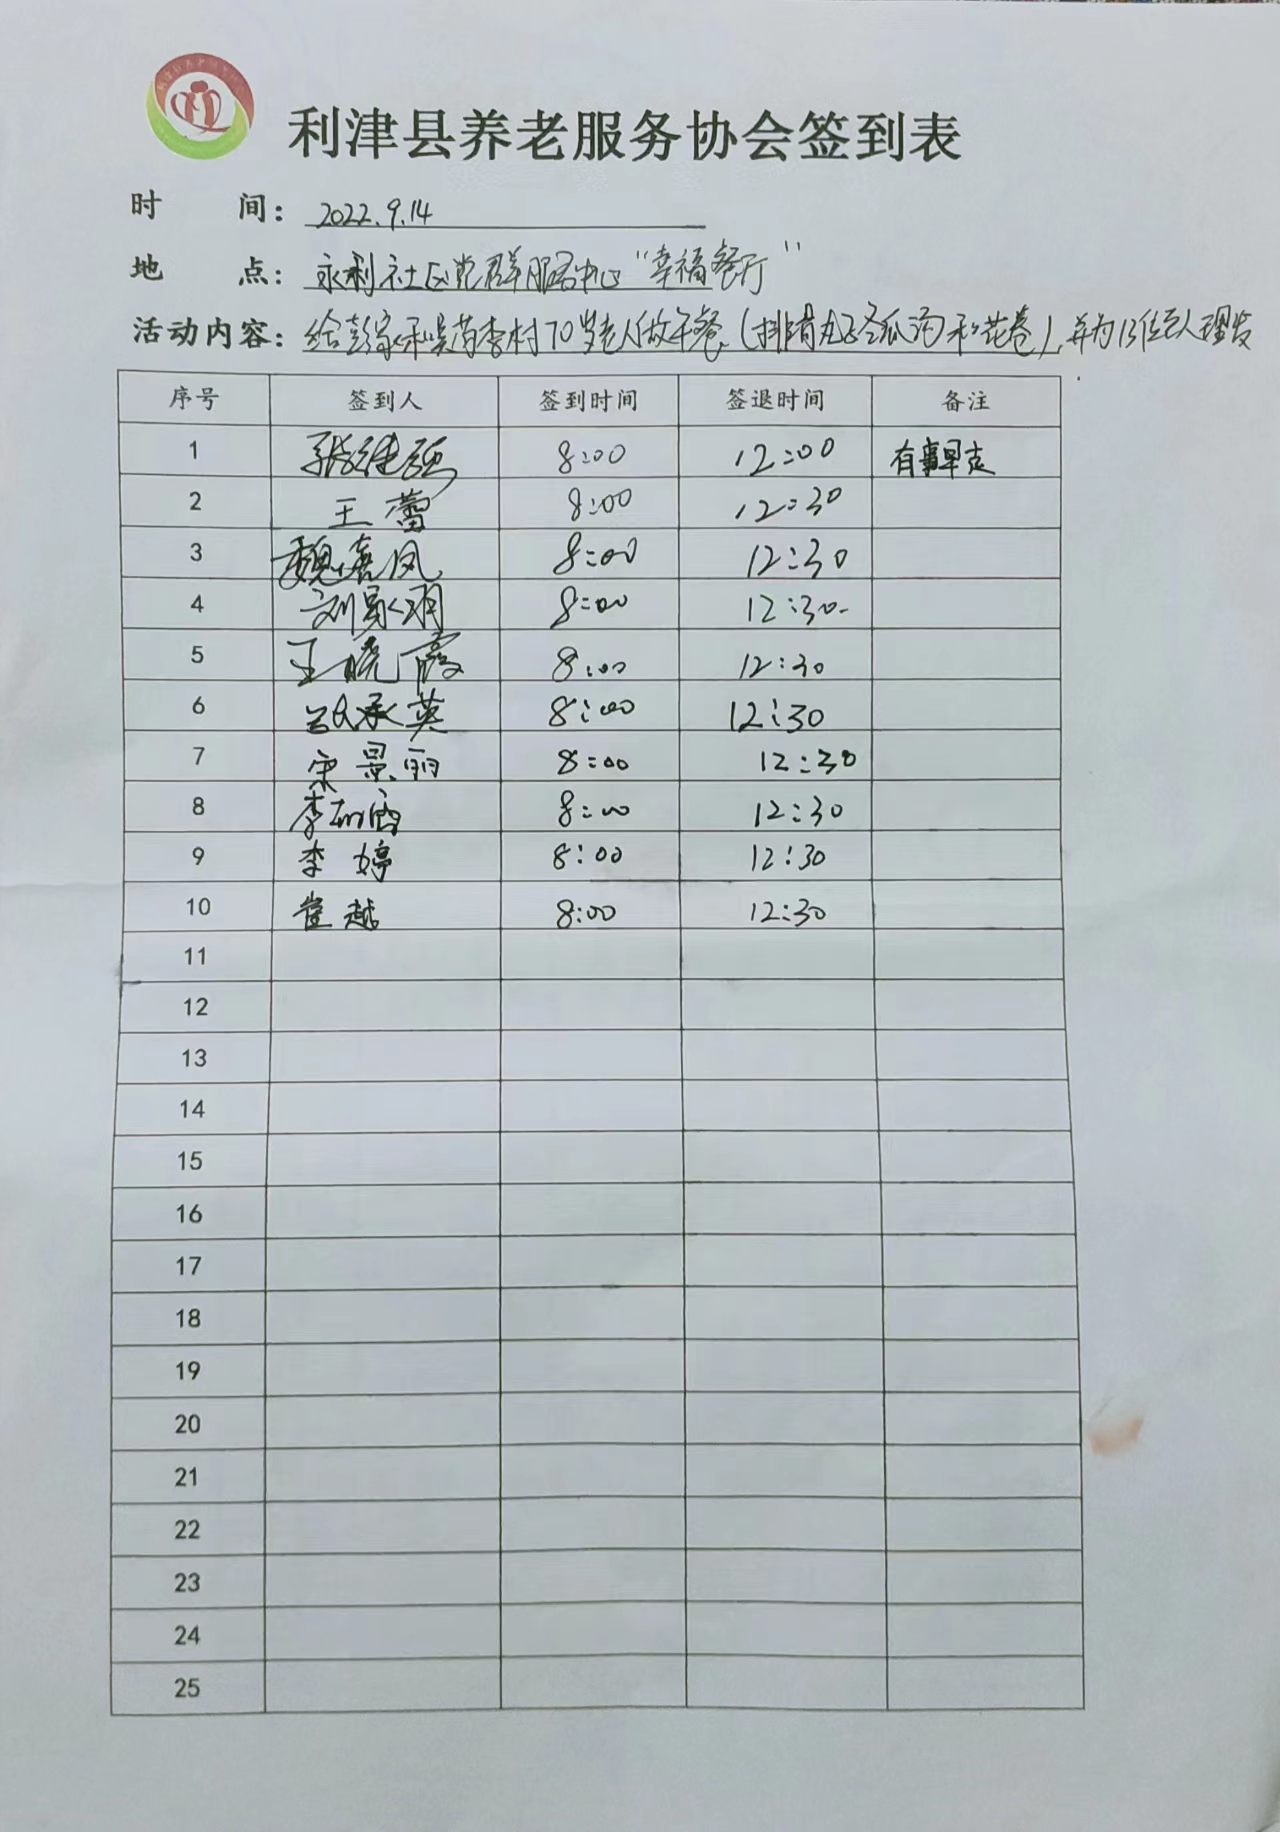 利津县养老服务协会签到表
时 间: 2022.9.14
地 点: 永利社区党群服务中心"幸福餐厅"
活动内容: 给彭家和吴苟李村70岁老人做午餐(排骨丸子冬瓜汤和花卷),并为13位老人理发
序号 签到人 签到时间 签退时间 备注
1 张建强 8:00 12:00 有事早走
2 王蕾 8:00 12:30
3 魏喜凤 8:00 12:30
4 8:00 12:30
5 王晓霞 8:00 12:30
6 承英 8:00 12:30
7 宋景丽 8:00 12:30
8 李 8:00 12:30
9 李婷 8:00 12:30
10 崔越 8:00 12:30
11
12
13
14
15
16
17
18
19
20
21
22
23
24
25